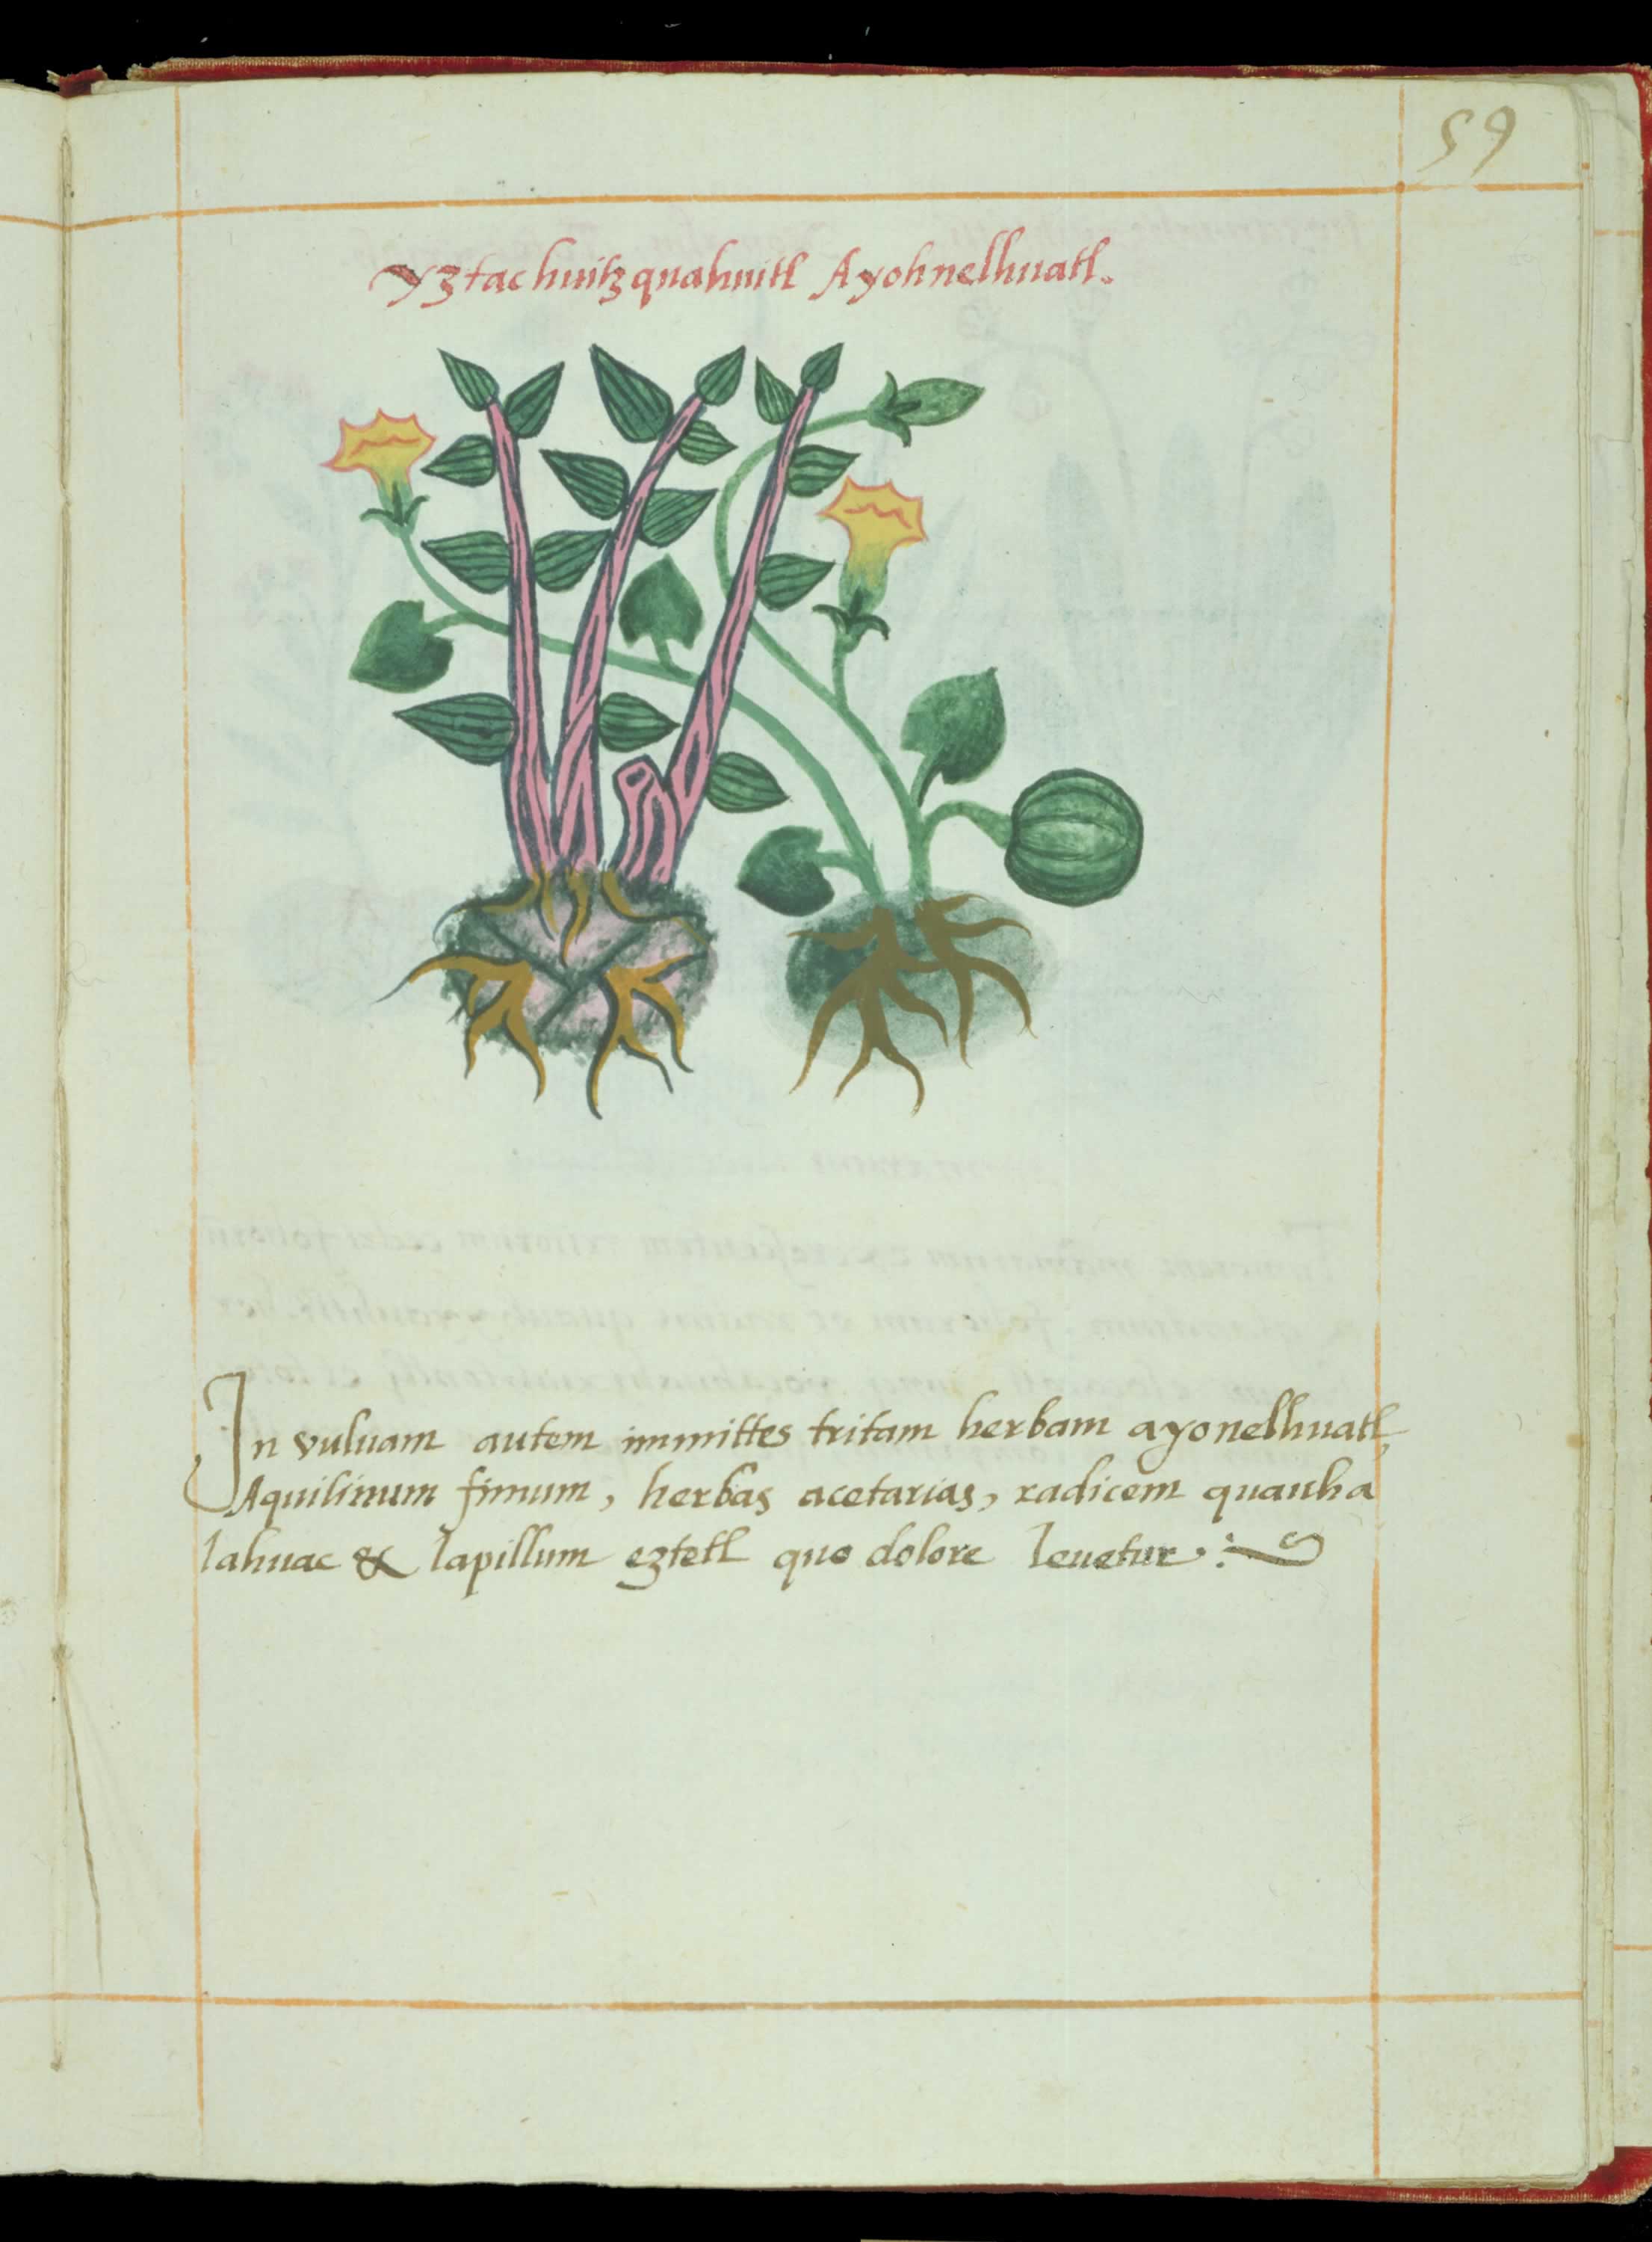 59
Yztac huitzquahuitl Ayohnelhuatl.
In vuluam autem immittes tritam herbam ayonelhuatl,
Aquilinum fimum, herbas acetarias, radicem quauha
lahuac & lapillum eztetl quo dolore leuetur :~